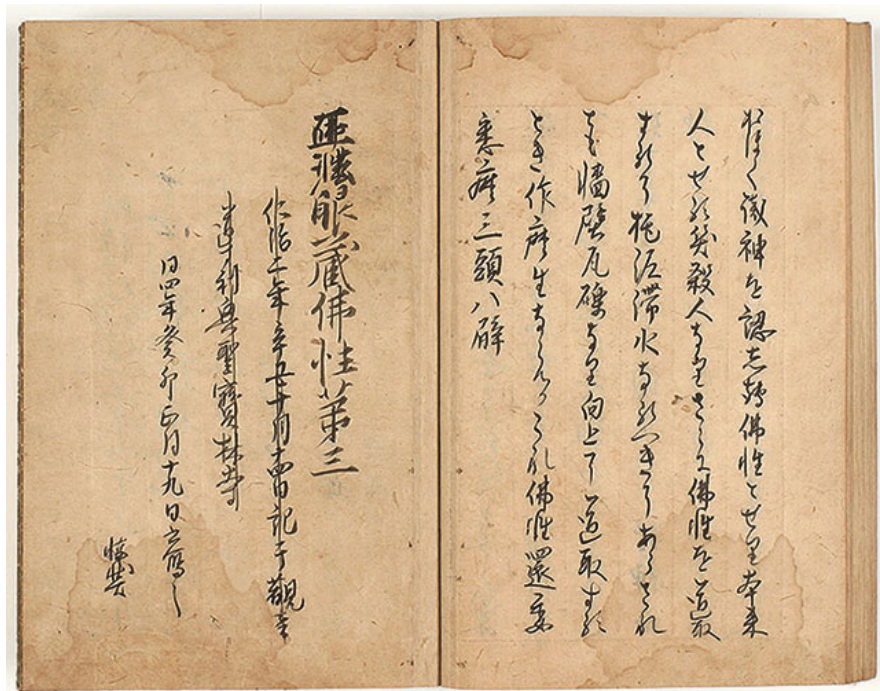 おほく識神を認して佛性とせり本来
人とせる笑殺人なりさらに佛性を道取
するに拕泥滞水なるへきにあらされ
とも牆壁瓦礫なり向上に道取する
とき作麼生ならんかこれ佛性還委
悉麼三頭八臂
正法眼蔵佛性第三
仁治二年辛丑十月十四日記于觀音
導利興聖寶林寺
同四年癸卯正月十九日書寫之
懐弉